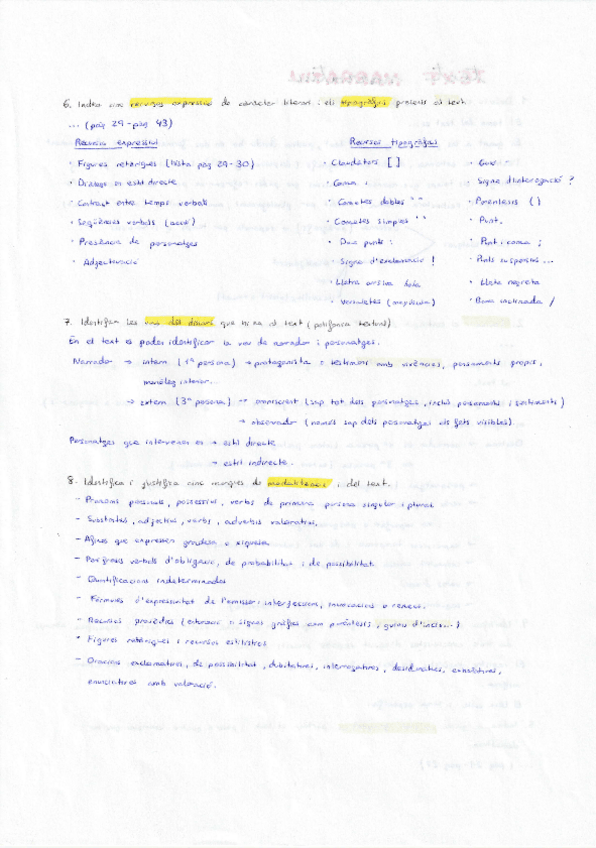 6. Indica cinc recursos expressius de caràcter literari i els tipogràfics presents al text.
... (pàg 29 - pàg 43)
Recursos expressius
· Figures retòriques (llista pàg 29-30)
· Diàlegs en estil directe
· Contrast entre temps verbals
· Seqüències verbals (acció)
· Presència de personatges
· Adjectivació
Recursos tipogràfics
· Claudàtors []
· Coma ,
· Cometes dobles " "
· Cometes simples ' '
· Dos punts :
· Signe d'exclamació !
· Lletra cursiva
· Versaletes
· Guió -
· Signe d'interrogació ?
· Parèntesis ()
· Punt.
· Punt i coma ;
· Punts suspensius ...
· Lletra negreta
· Barra inclinada /
7. Identifica les veus del discurs que hi ha al text (polifonia textual)
En el text es poden identificar la veu de narrador i personatges.
Narrador → intern (1ª persona) → protagonista o testimoni amb vivències, pensaments propis,
monòleg interior.
→ extern (3ª persona) → omniscient (sap tot dels personatges, inclús pensaments i sentiments)
→ observador (només sap dels personatges els fets visibles).
Personatges que intervenen en → estil directe
→ estil indirecte.
8. Identifica i justifica cinc marques de modalització del text.
- Pronoms personals, possessius, verbs de primera persona singular i plural
- Substantius, adjectius, verbs, adverbis valoratius.
- Afixos que expressen grandesa o xiquesa
- Perífrasis verbals d'obligació, de probabilitat i de possibilitat
- Quantificacions indeterminades
- Fórmules d'expressivitat de l'emissor: interjeccions, invocacions o renecs.
- Recursos prosòdics (entonació o signes gràfics com parèntesis, guions d'incís...)
* Figures retòriques i recursos estilístics
- Oracions exclamatives, de possibilitat, dubitatives, interrogatives, desideratives, exhortatives,
enunciatives amb valoració.